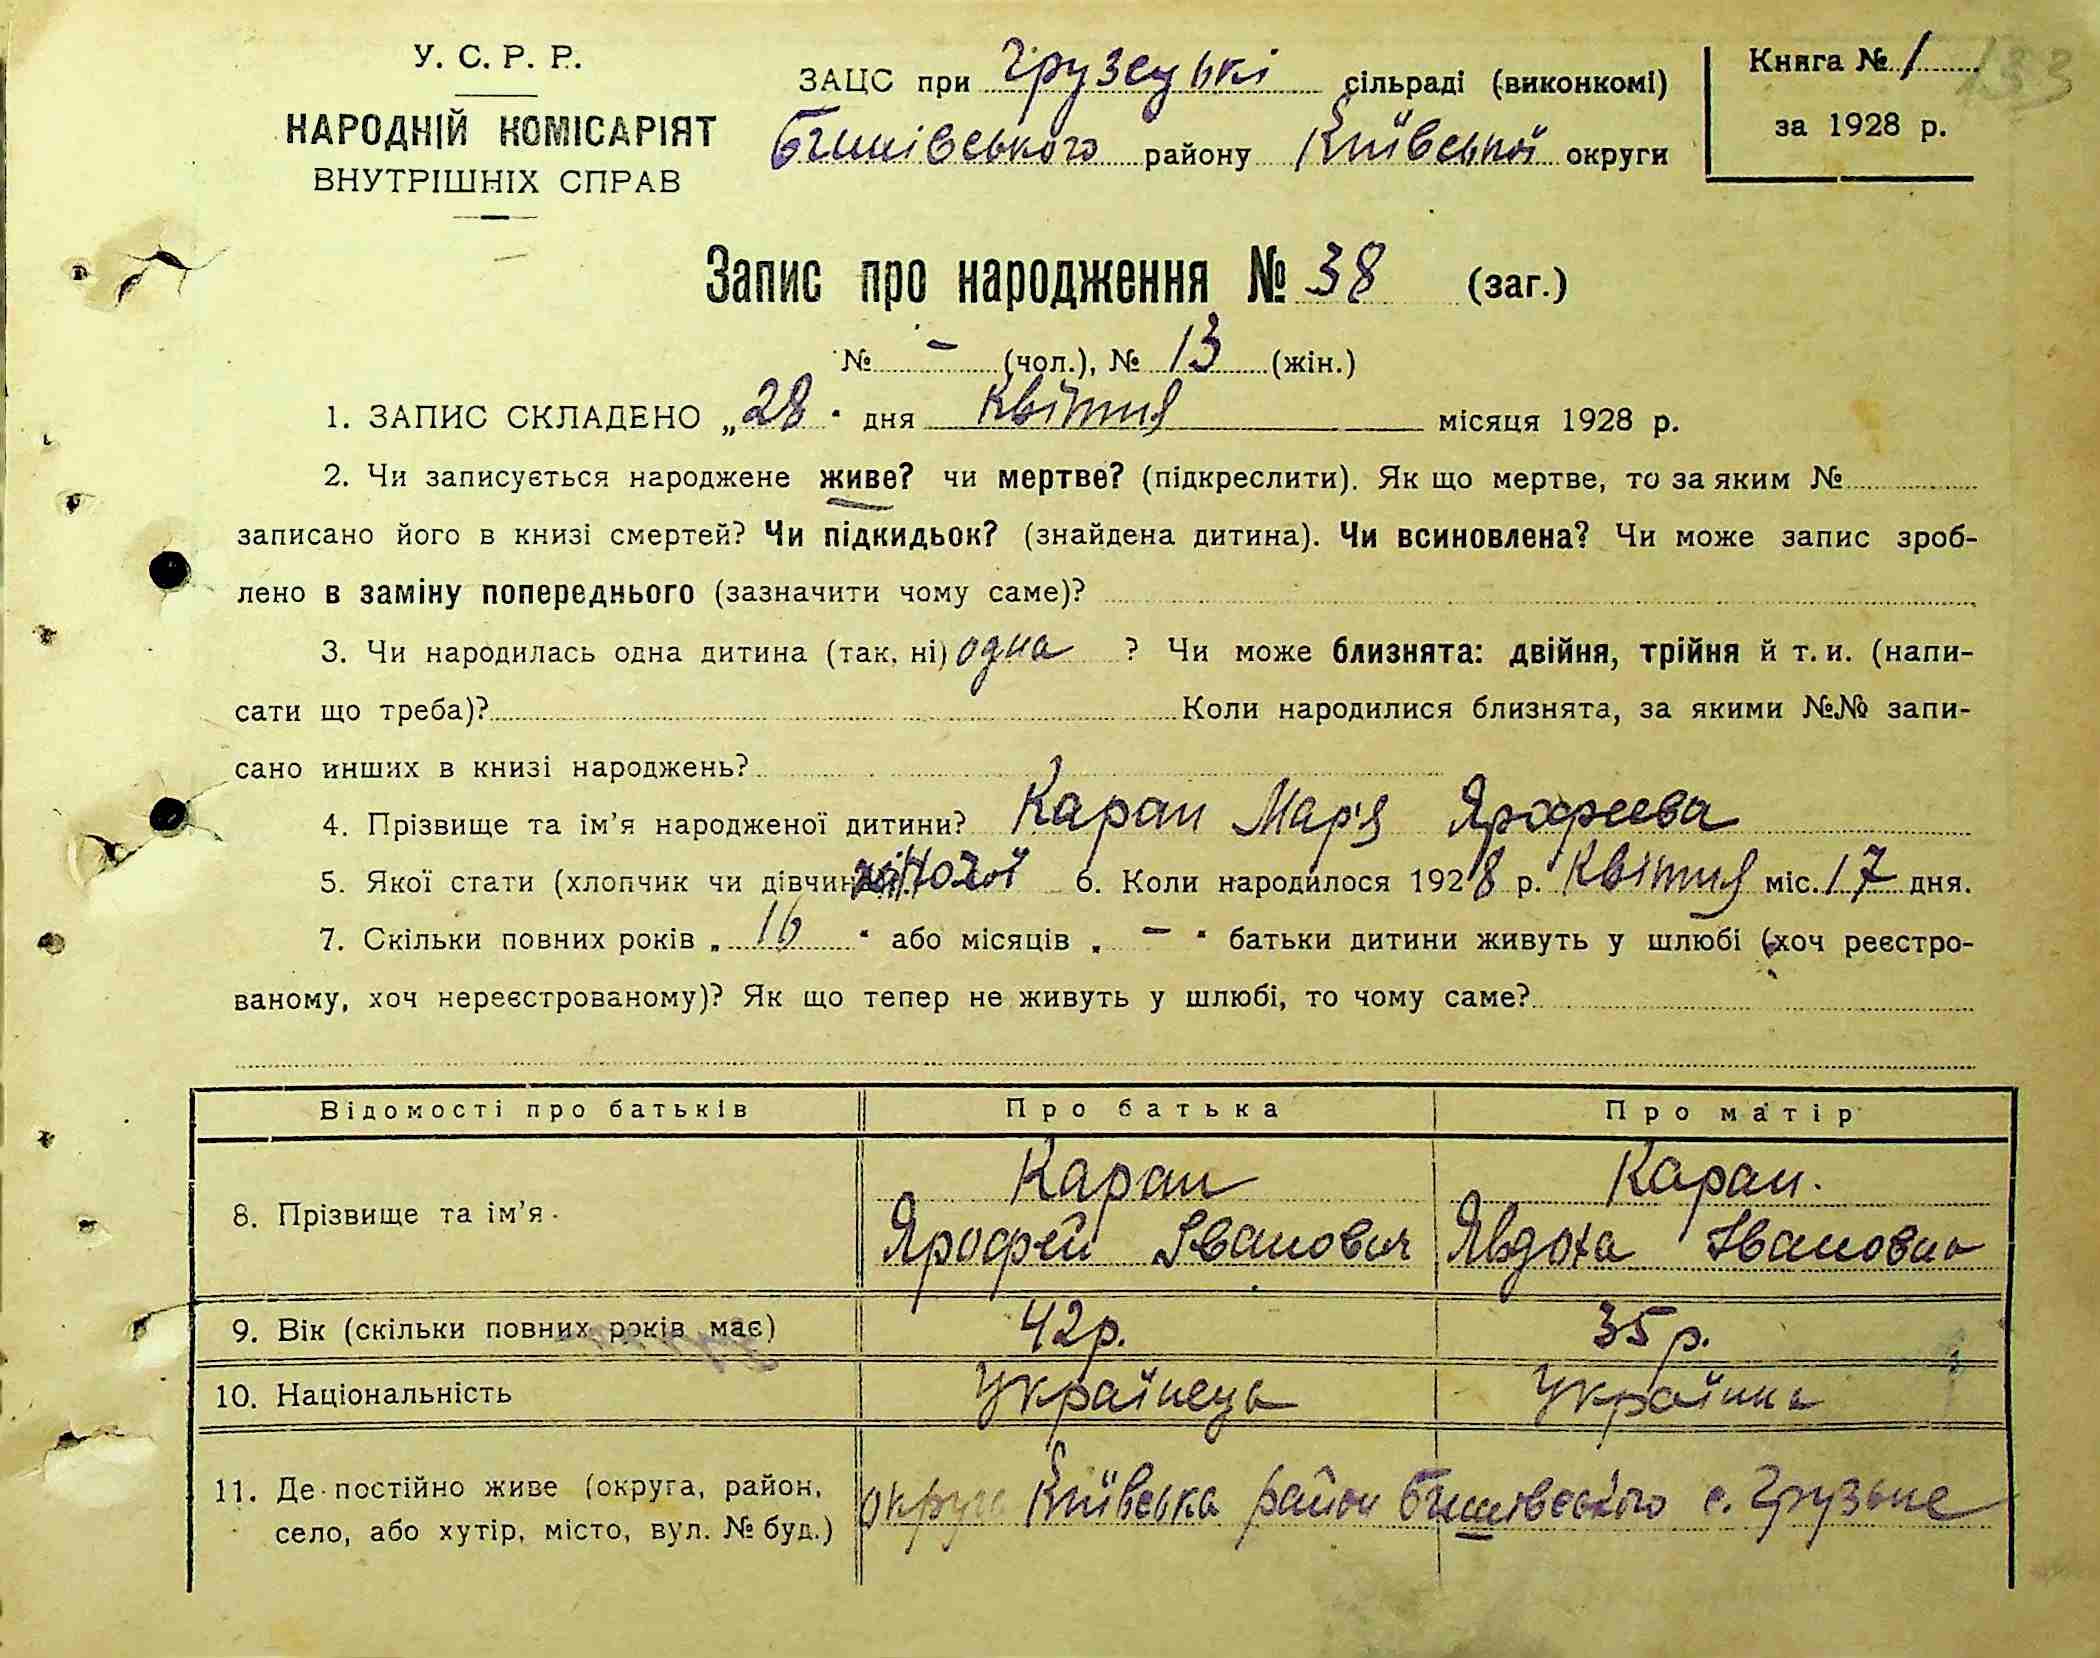 У. С. Р. Р.
НАРОДНІЙ КОМІСАРІЯТ
ВНУТРІШНІХ СПРАВ
ЗАЦС при Грузській сільраді (виконкомі)
Бишівського району Київської округи
Книга № 1
133
за 1928 р.
Запис про народження № 38 (заг.)
№ - (чол.), № 13 (жін.)
1. ЗАПИС СКЛАДЕНО „28" дня квітня місяця 1928 р.
2. Чи записується народжене живе? чи мертве? (підкреслити). Як що мертве, то за яким №
записано його в книзі смертей? Чи підкидьок? (знайдена дитина). Чи всиновлена? Чи може запис зроб-
лено в заміну попереднього (зазначити чому саме)?
3. Чи народилась одна дитина (так, ні) одна ? Чи може близнята: двійня, трійня й т. и. (напи-
сати що треба)? Коли народилися близнята, за якими №№ запи-
сано инших в книзі народжень?
4. Прізвище та ім'я народженої дитини? Каран Мар'я Ярофеева
5. Якої стати (хлопчик чи дівчин жіночої 6. Коли народилося 1928 р. Квітня міс. 17 дня.
7. Скільки повних років „ 16 " або місяців „ - " батьки дитини живуть у шлюбі (хоч реєстро-
ваному, хоч нереєстрованому)? Як що тепер не живуть у шлюбі, то чому саме?
Відомості про батьків Про батька Про матір
8. Прізвище та ім'я. Каран Каран.
Ярофей Іванович Явдоха Івановна
9. Вік (скільки повних років має) 42 р. 35 р.
10. Національність Українець Українка
11. Де постійно живе (округа, район,
село, або хутір, місто, вул. № буд.) округа Київська район Бишівського с. Грузьке